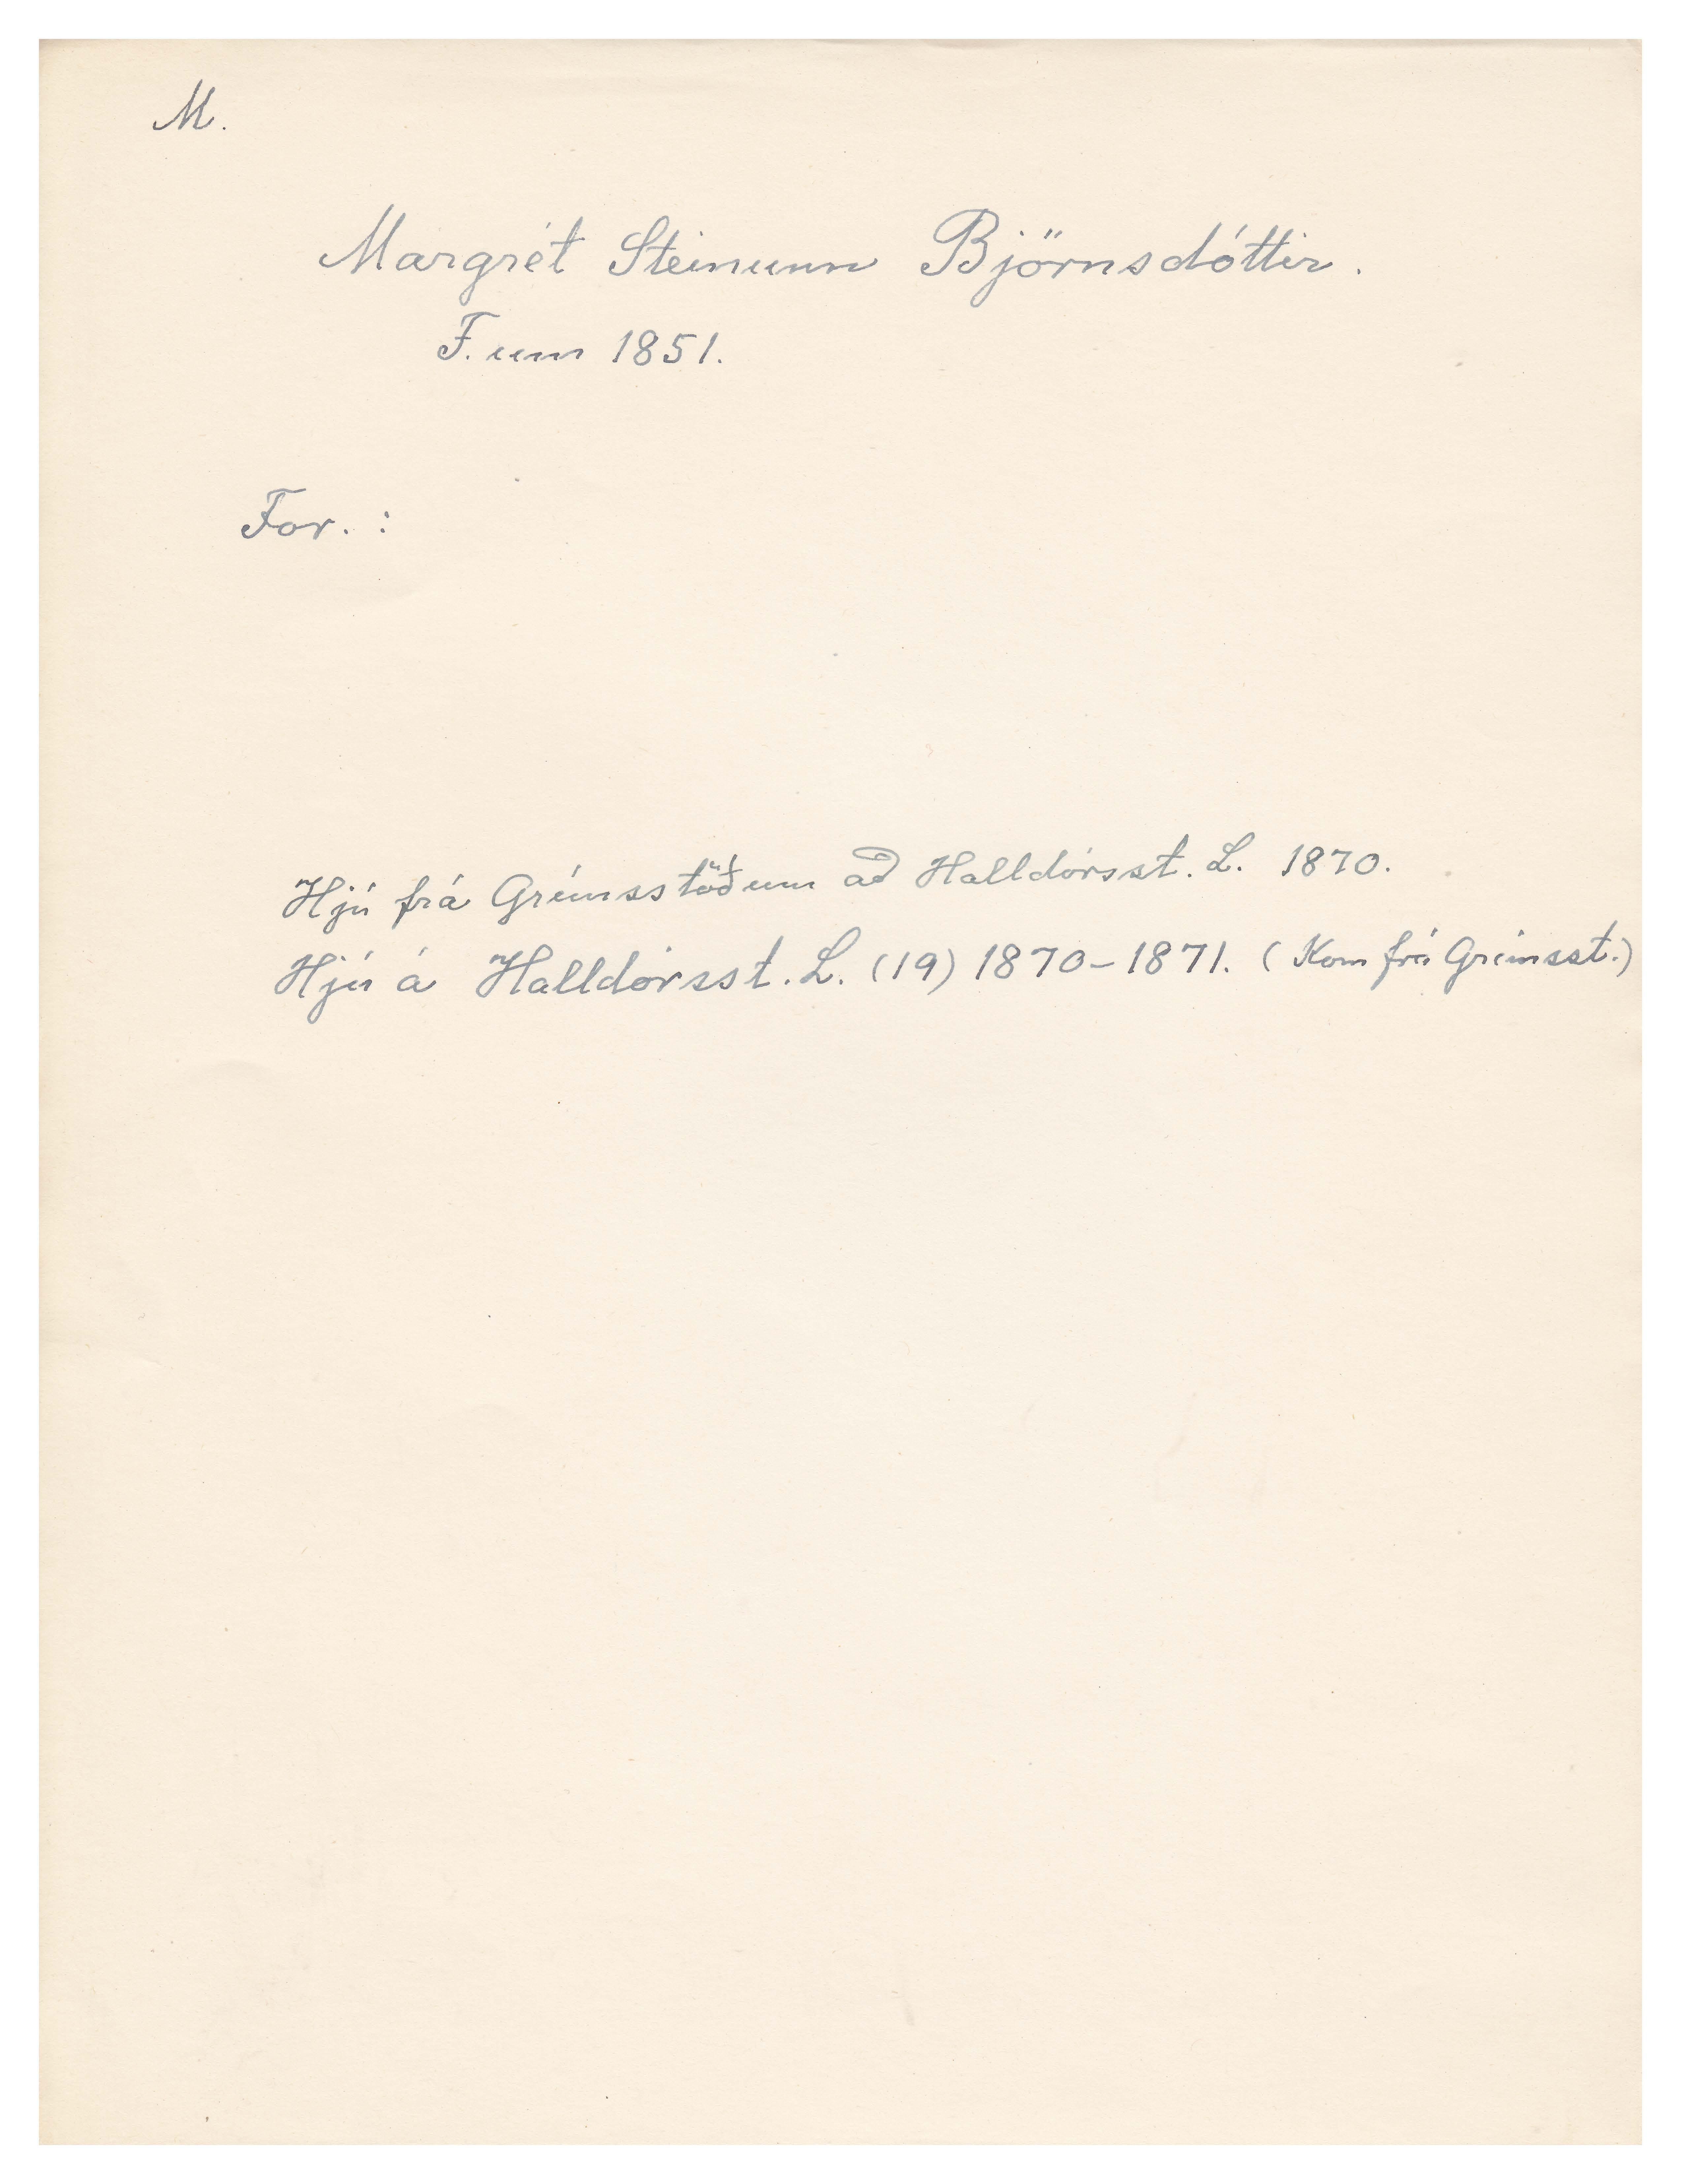 M.
Margrét Steinunn Björnsdóttir.
F. um 1851.
For. :
Hjú frá Grímsstöðum að Halldórsst. L. 1870.
Hjú á Halldórsst. L. (19) 1870-1871. (Kom frá Grímsst.)